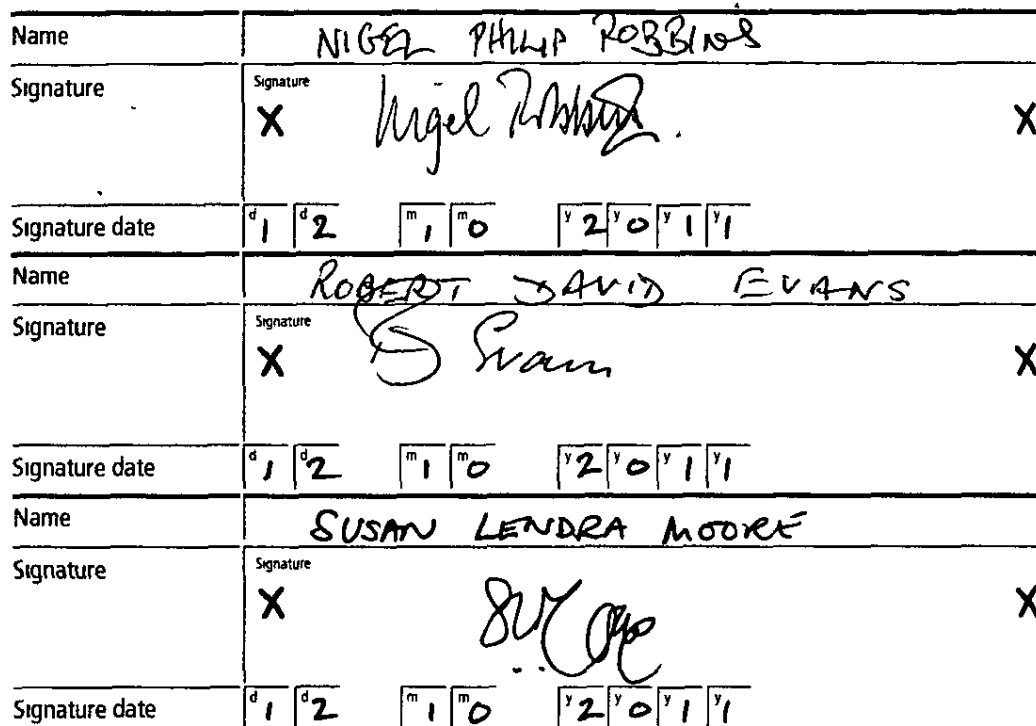 Name NIGEL PHILIP ROBBINS
Signature
Signature
X Nigel Robbins. X
Signature date d1 d2 m1 m0 y2 y0 y1 y1
Name ROBERT DAVID EVANS
Signature
Signature
X Evans X
Signature date d1 d2 m1 m0 y2 y0 y1 y1
Name SUSAN LENDRA MOORE
Signature
Signature
X X
Signature date d1 d2 m1 m0 y2 y0 y1 y1